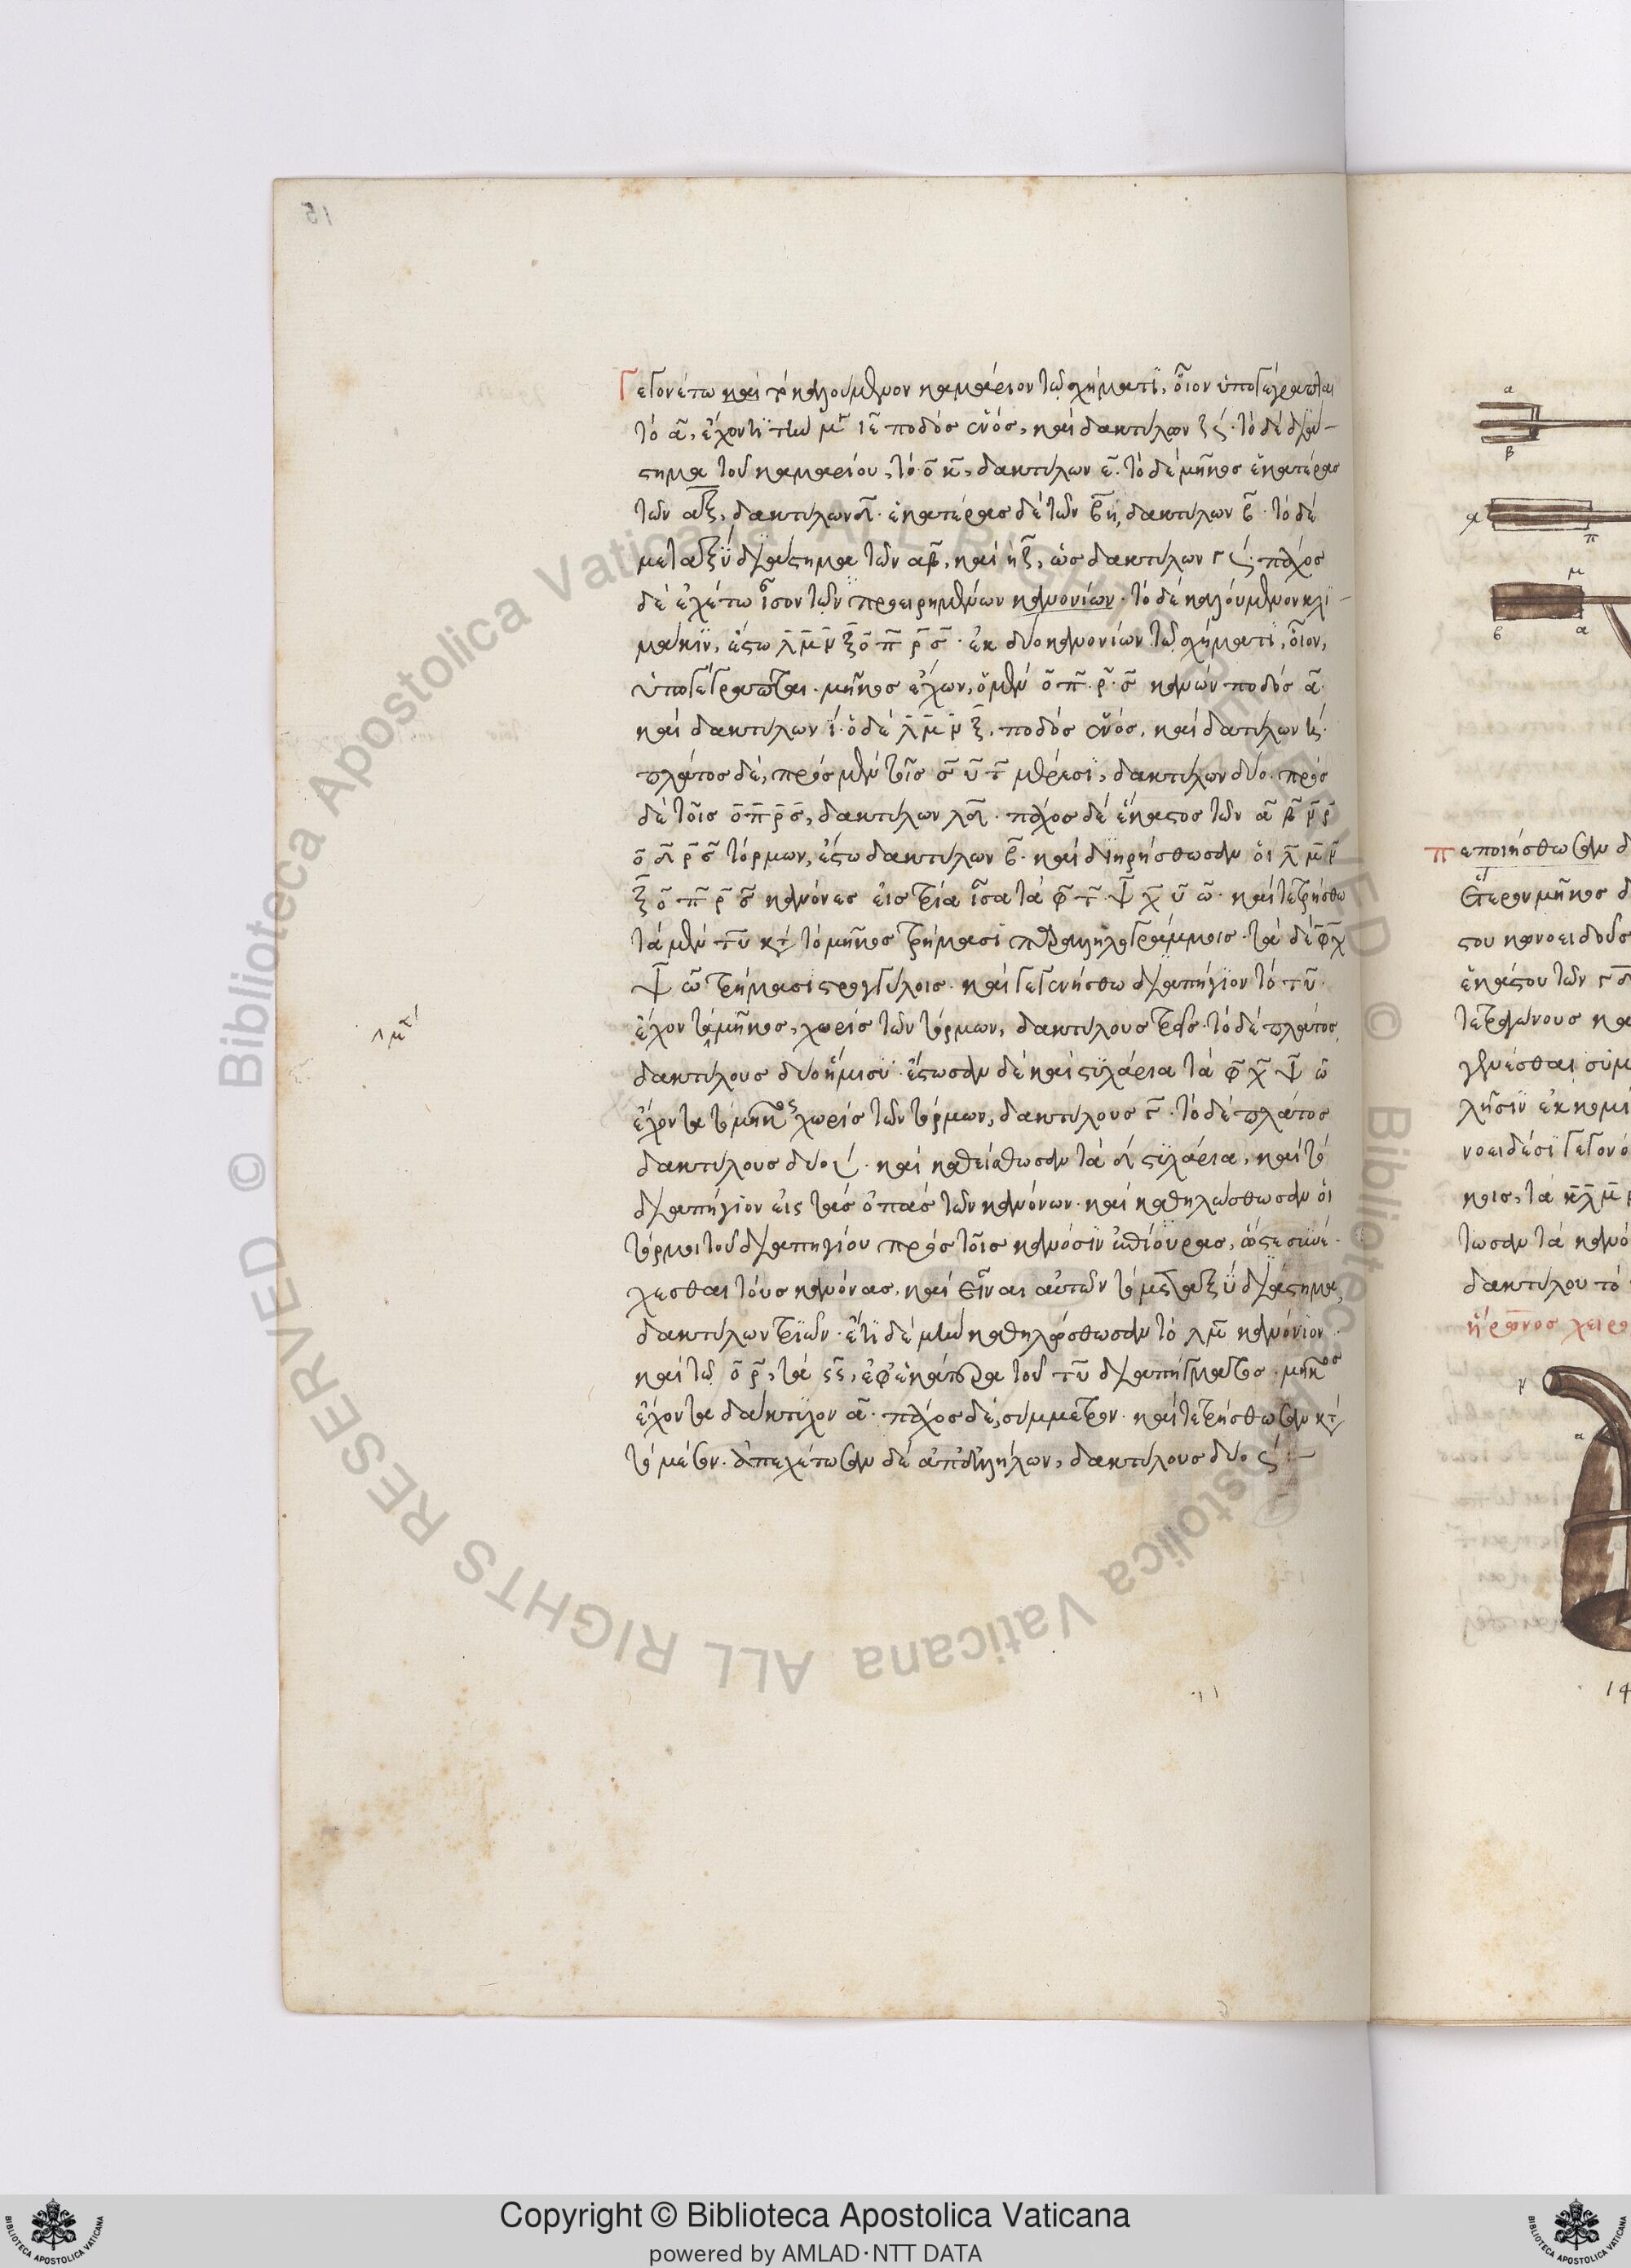 15
Γεγονέτω καὶ τὸ καλούμενον καμάριον τῷ σχήματϊ, οἷον ὑπογέγραπται
τὸ α̅, ἔχοντϊ τὴν ποδὸς ἑνός, καὶ δακτύλων τὸ δὲ διά-
στημα τοῦ καμαρίου, τὸ ο̅ κ̅, δακτύλων ε̅. τὸ δὲ μῆκος ἑκατέρας
τῶν α̅ξ̅, δακτύλων ἑκατέρας δὲ τῶν β̅η̅, δακτύλων β̅. τὸ δὲ
μεταξϋ διάστημα τῶν αβ, καὶ ηξ̅, ὡς δακτύλων πάχος
δὲ ἐχέτω ἴσον τῶν προειρημένων κανονίων. τὸ δὲ καλούμενον κλϊ-
μάκιν, ἔστω λ̅ μ̅ ν̅ ξ̅ ο̅ π̅ ρ̅ σ̅. ἐκ δύο κανονίων τῷ σχήματϊ, οἷον,
ὑπογέγραπται. μῆκος ἔχων, ὁ μὲν ο̅ π̅. ρ̅. σ̅ κανὼν ποδὸς α̅.
καὶ δακτύλων ι. ὁ δὲ λ̅ μ̅ ν̅ ξ̅. ποδὸς ἑνός, καὶ δατύλων
πλάτος δὲ, πρὸς μὲν τοῖς σ̅ υ̅ τ̅ μέρεσϊ, δακτύλων δύο. πρὸς
δὲ τοῖς ο̅ π̅ ρ̅ σ̅, δακτύλων πάχος δὲ ἕκαστος τῶν α̅ β̅ ν̅ ρ̅
ο̅ ρ̅ σ̅ τόρμων, ἔστω δακτύλων β̅. καὶ διηρήσθωσαν οἱ λ̅ μ̅ ν̅
ξ̅ ο̅ π̅ ρ̅ σ̅ κανόνες εἰς τρία ἴσα τὰ φ̅ τ̅. ψ̅ χ̅ υ̅ ω̅. καὶ τετρήσθω
τὰ μὲν τ̅υ̅ κτ τὸ μῆκος τρήμασϊ παραλληλογράμμοις. τὰ δὲ φ̅χ̅
ψ̅ ω̅ τρήμασι στρογγύλοις. καὶ γεγενήσθω διαπήγϊον τὸ τ̅υ̅.
ἔχον τὸ μῆκος, χωρὶς τῶν τόρμων, δακτύλους τρεῖς. τὸ δὲ πλάτος
δακτύλους δύο ἥμισϋ. ἔστωσαν δὲ καὶ στϋλάρια τὰ φ̅ χ̅ ψ̅ ω̅
ἔχοντα τὸ μῆκος χωρὶς τῶν τόρμων, δακτύλους τὸ δὲ πλάτος
δακτύλους δύο καὶ καθείσθωσαν τὰ στϋλάρια, καὶ τὸ
διαπήγϊον εἰς τὰς ὀπὰς τῶν κανόνων. καὶ καθηλώσθωσαν οἱ
τόρμοι τοῦ διαπηγίου πρὸς τοῖς κανόσϊν ὥστε συνέ-
χεσθαι τοὺς κανόνας. καὶ εἶναι αὐτῶν τὸ μεταξϋ διάστημα,
δακτύλων τριῶν. ἔτϊ δὲ μὴν καθηλώσθωσαν τὸ λ̅μ̅ κανόνιον.
καὶ τῷ ο̅ ρ̅, τὰ ς̅ς̅, ἐφ' ἑκάτερα τοῦ τ̅υ̅ διαπήγματος. μῆκος
ἔχοντα δάκτϋλον α̅. πάχος δὲ, σύμμετρον. καὶ τετρήσθωσαν κτ
τὸ μέσον. ἀπεχέτωσαν δὲ ἀπ' ἀλλήλων, δακτύλους δύο
α
β
α
π
μ
β
α
πεποιήσθωσαν δ
ἕτερον μῆκος δ
του κανοειδοῦς
ἑκάστου τῶν
τετραγώνους κα
γενέσθαι σύμ
λῆσϊν ἐκ κομι
νοειδέσϊ γεγονό
κοις, τὰ κ̅λ̅μ̅
τωσαν τὰ κανό
δακτύλου τὸ
ἥρωνος χειρο
ν
α
14
Copyright © Biblioteca Apostolica Vaticana
powered by AMLAD·NTT DATA
© Biblioteca Apostolica Vaticana ALL RIGHTS RESERVED © Biblioteca Apostolica Vaticana ALL RIGHTS RESERVED
BIBLIOTECA APOSTOLICA VATICANA
BIBLIOTECA APOSTOLICA VATICANA